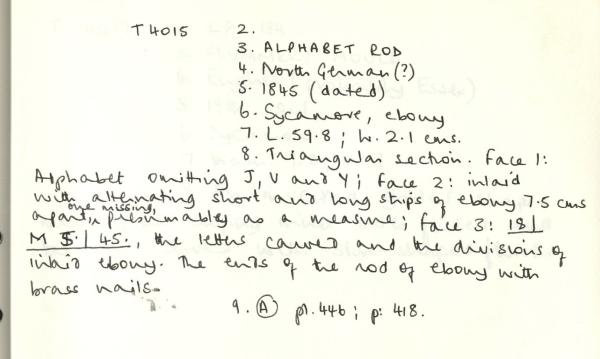 T 4015 2.
3. ALPHABET ROD
4. North German (?)
5. 1845 (dated)
6. Sycamore, ebony
7. L. 59.8 ; W. 2.1 cms.
8. Triangular section. Face 1:
Alphabet omitting J, V and Y; Face 2: inlaid
with alternating short and long strips of ebony 7.5 cms
apart, one missing, presumably as a measure; Face 3: 18|
M S.| 45., the letters carved and the divisions of
inlaid ebony. The ends of the rod of ebony with
brass nails.
9. A pl. 446 ; p: 418.